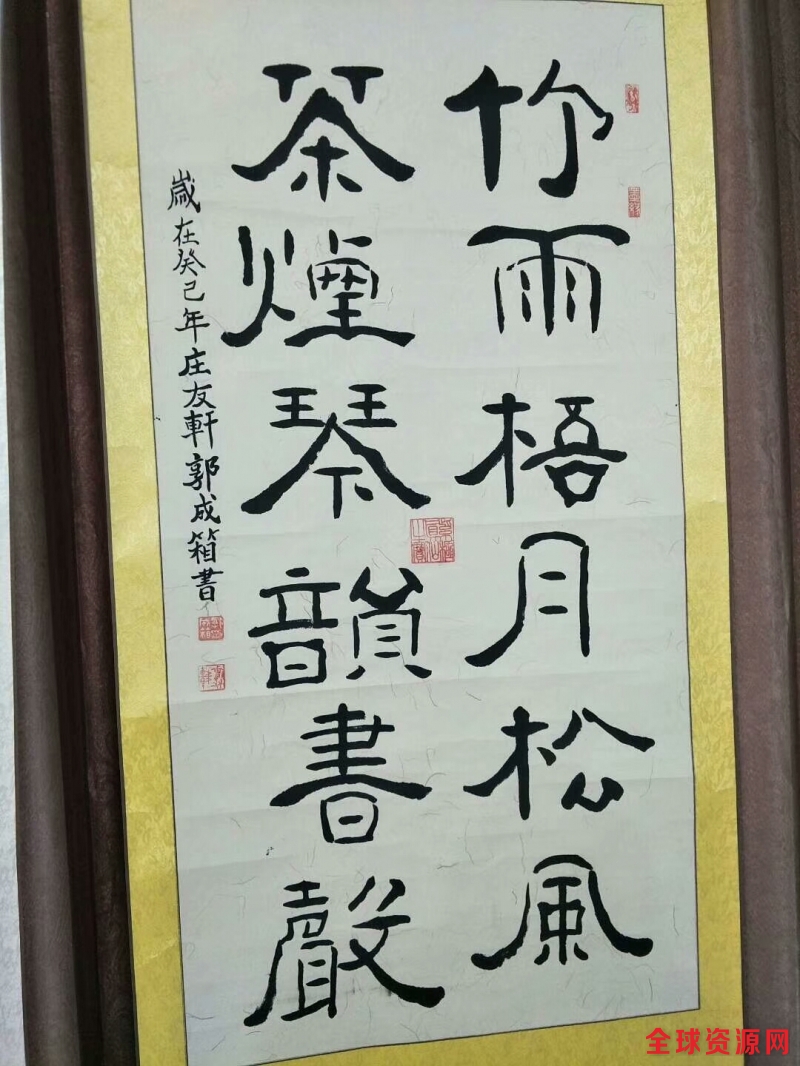 竹雨梧月松風
茶煙琴韻書聲
歲在癸巳年庄友軒郭成箱書
全球资源网